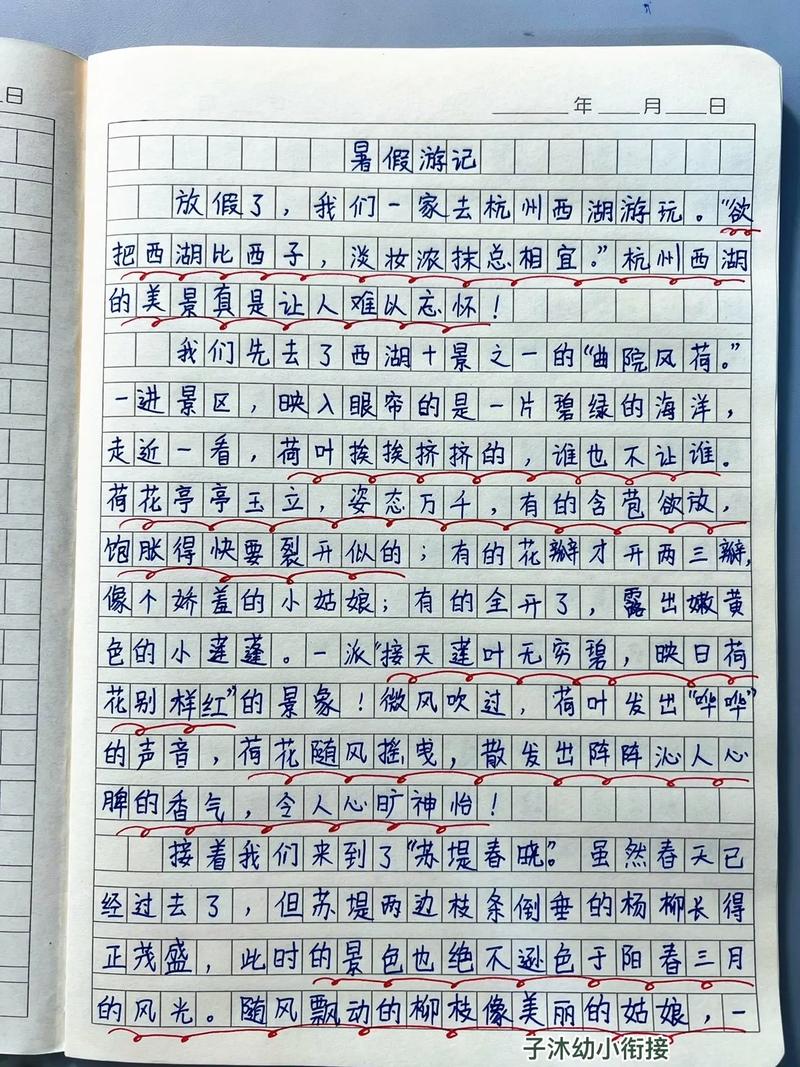 日
年 月 日
暑假游记
放假了，我们一家去杭州西湖游玩。“欲
把西湖比西子，淡妆浓抹总相宜。”杭州西湖
的美景真是让人难以忘怀！
我们先去了西湖十景之一的“曲院风荷。”
一进景区，映入眼帘的是一片碧绿的海洋，
走近一看，荷叶挨挨挤挤的，谁也不让谁。
荷花亭亭玉立，姿态万千，有的含苞欲放，
饱胀得快要裂开似的；有的花瓣才开两三瓣，
像个娇羞的小姑娘；有的全开了，露出嫩黄
色的小莲蓬。一派“接天莲叶无穷碧，映日荷
花别样红”的景象！微风吹过，荷叶发出“哗哗”
的声音，荷花随风摇曳，散发出阵阵沁人心
脾的香气，令人心旷神怡！
接着我们来到了“苏堤春晓”。虽然春天已
经过去了，但苏堤两边枝条倒垂的杨柳长得
正茂盛，此时的景色也绝不逊色于阳春三月
的风光。随风飘动的柳枝像美丽的姑娘，一
子沐幼小衔接